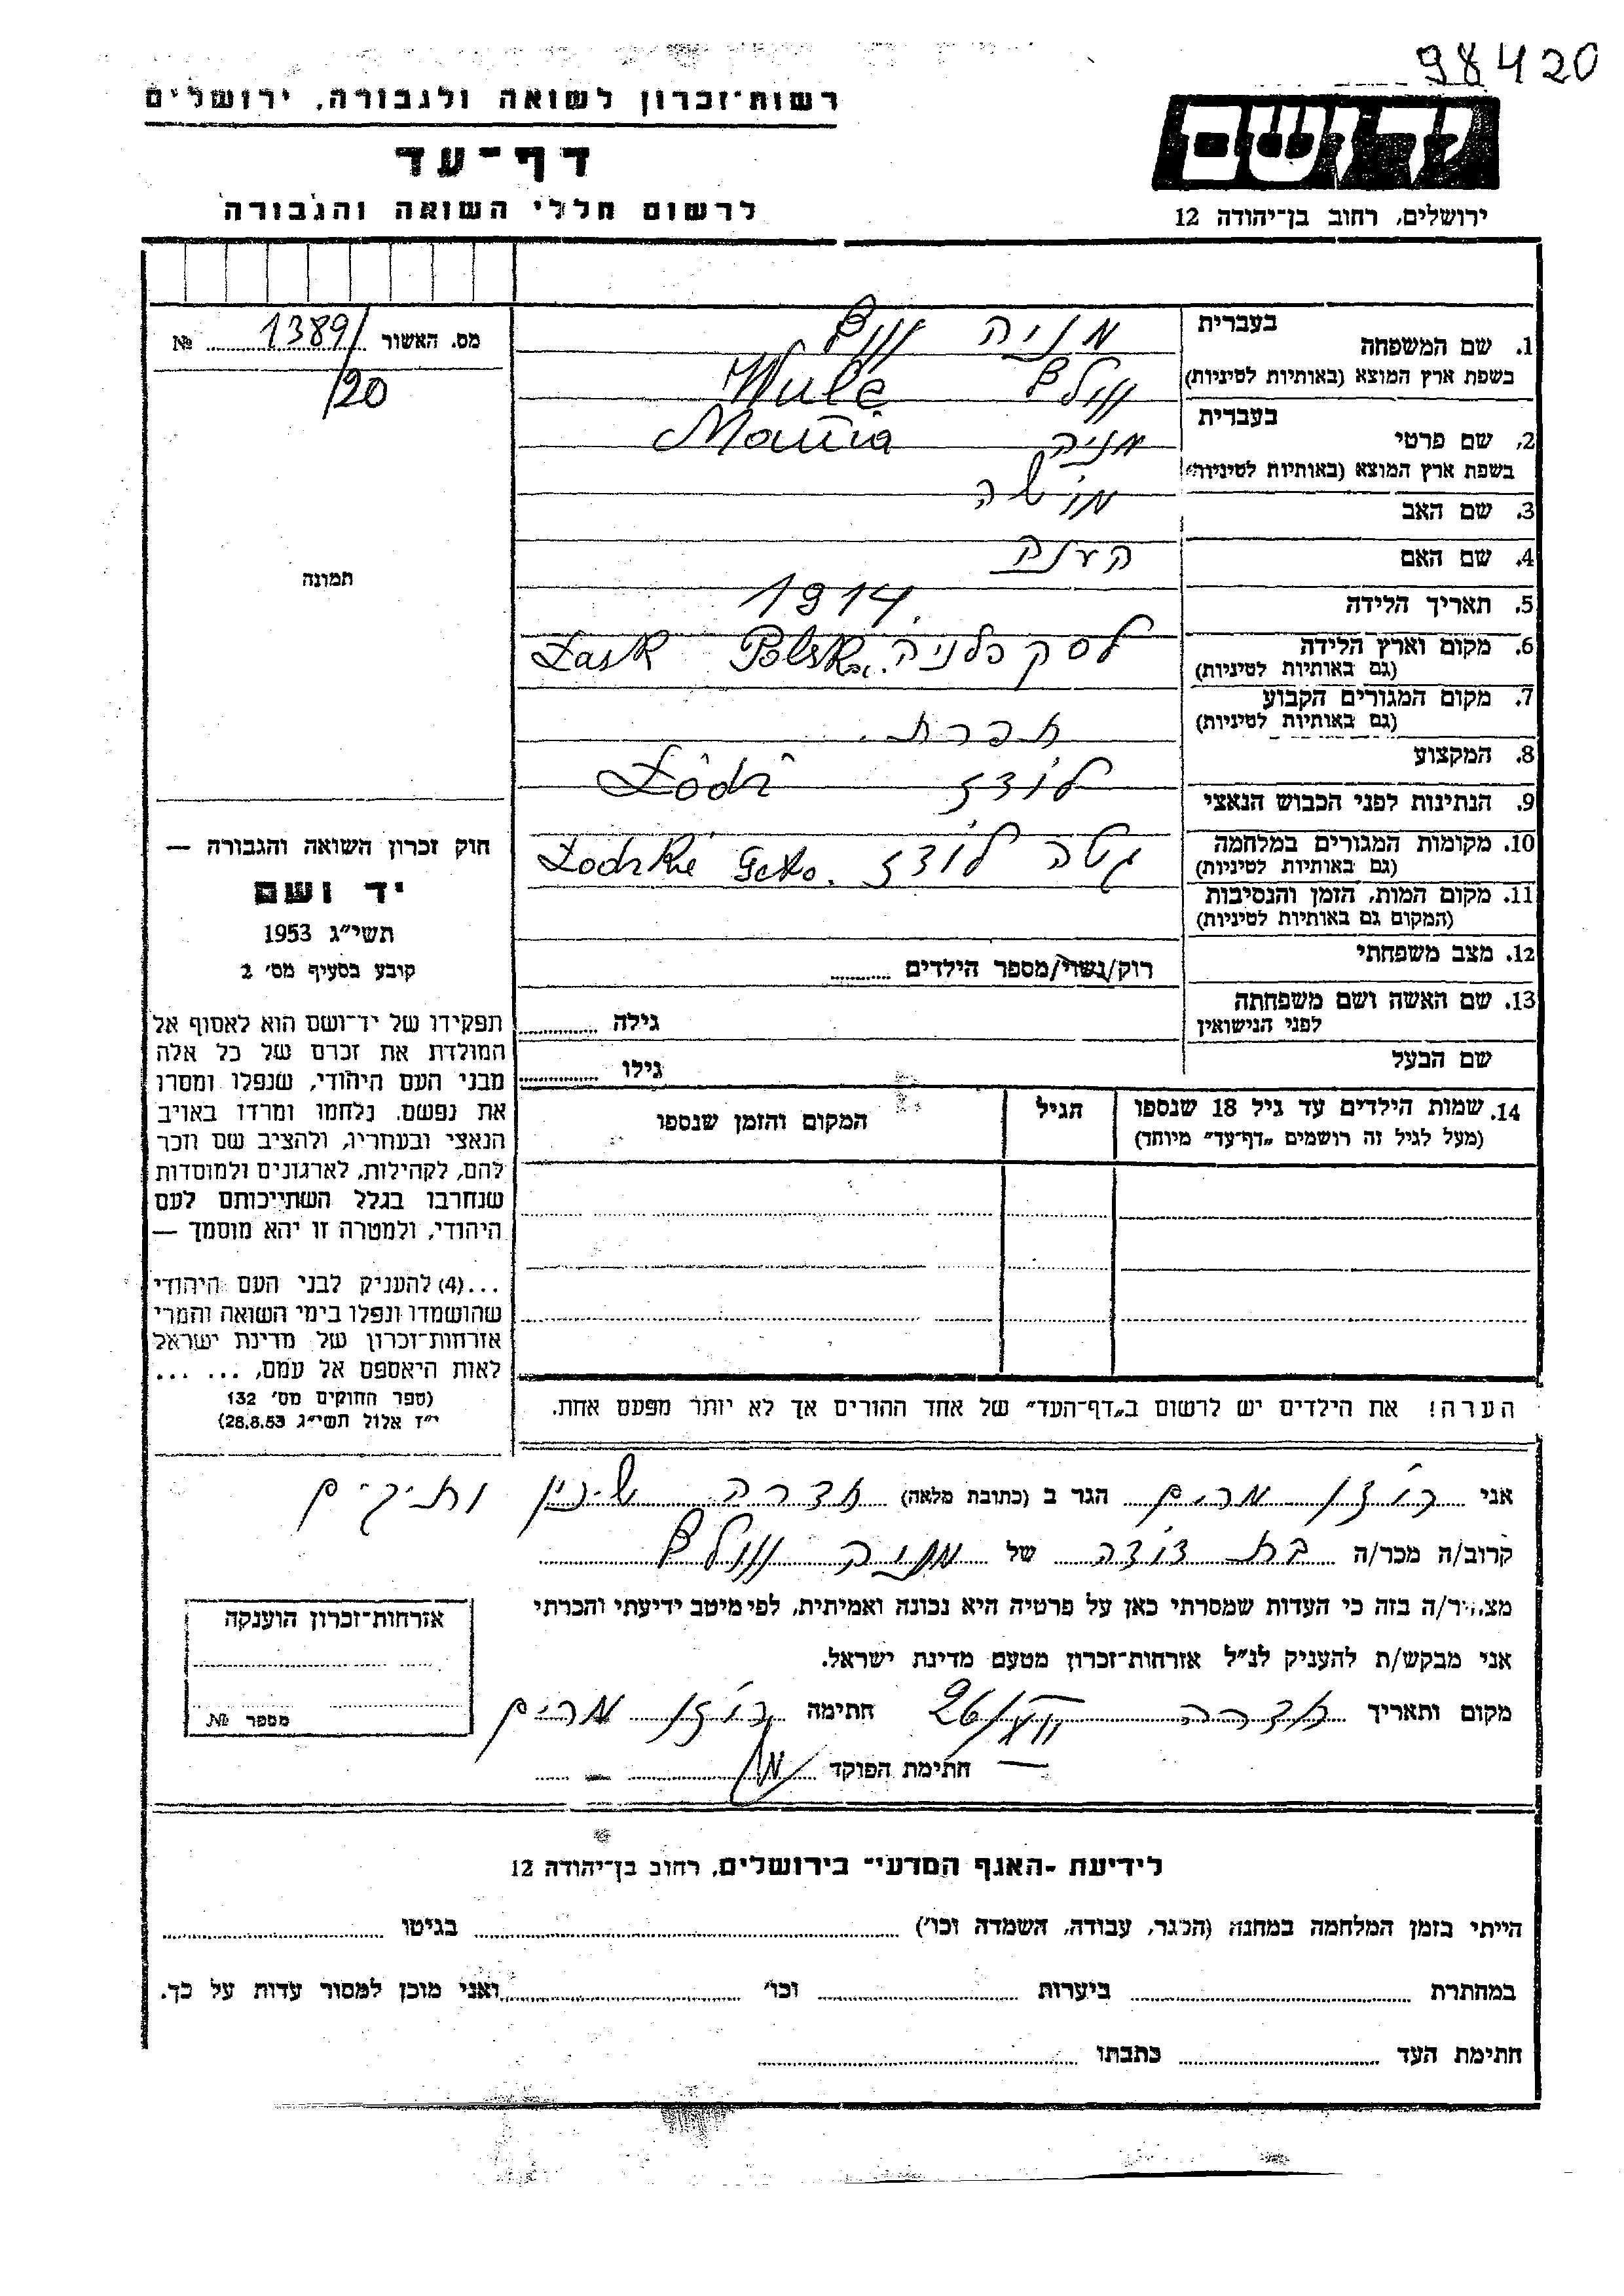 98420
רשות־זכרון לשואה ולגבורה, ירושלים
דף־עד
לרשום חללי השואה והגבורה
יד ושם
ירושלים, רחוב בן־יהודה 12
מס. האשור 1389/ №
/20
תמונה
חוק זכרון השואה והגבורה —
יד ושם
תשי״ג 1953
קובע בסעיף מס׳ 2
תפקידו של יד־ושם הוא לאסוף אל
המולדת את זכרם של כל אלה
מבני העם היהודי, שנפלו ומסרו
את נפשם, נלחמו ומרדו באויב
הנאצי ובעוזריו, ולהציב שם וזכר
להם, לקהילות, לארגונים ולמוסדות
שנחרבו בגלל השתייכותם לעם
היהודי, ולמטרה זו יהא מוסמך —
...(4) להעניק לבני העם היהודי
שהושמדו ונפלו בימי השואה והמרי
אזרחות־זכרון של מדינת ישראל
לאות היאספם אל עמם, ... ...
(ספר החוקים מס׳ 132
י״ז אלול תשי״ג 28.8.53)
בעברית מניה
1. שם המשפחה
בשפת ארץ המוצא (באותיות לטיניות) וולף Wulf
בעברית
2. שם פרטי מניה Mania
בשפת ארץ המוצא (באותיות לטיניות)
3. שם האב מושה
4. שם האם
5. תאריך הלידה 1914
6. מקום וארץ הלידה לסק פלניה Łask Polska
(גם באותיות לטיניות)
7. מקום המגורים הקבוע
(גם באותיות לטיניות)
8. המקצוע תפרת
9. הנתינות לפני הכבוש הנאצי לודז Łódź
10. מקומות המגורים במלחמה גטה לודז Łodzkie Geto.
(גם באותיות לטיניות)
11. מקום המות, הזמן והנסיבות
(המקום גם באותיות לטיניות)
12. מצב משפחתי רוק/נשוי/מספר הילדים
13. שם האשה ושם משפחתה גילה
לפני הנישואין
שם הבעל גילו
14. שמות הילדים עד גיל 18 שנספו הגיל המקום והזמן שנספו
(מעל לגיל זה רושמים „דף־עד״ מיוחד)
הערה! את הילדים יש לרשום ב„דף־העד״ של אחד ההורים אך לא יותר מפעם אחת.
אני רוזן מרים הגר ב (כתובת מלאה) אדרה שיכון ותיקים
קרוב/ה מכר/ה בת דודה של מניה וולף
מצהיר/ה בזה כי העדות שמסרתי כאן על פרטיה היא נכונה ואמיתית, לפי מיטב ידיעתי והכרתי
אני מבקש/ת להעניק לנ״ל אזרחות־זכרון מטעם מדינת ישראל.
מקום ותאריך אדרה חתימה רוזן מרים
חתימת הפוקד
אזרחות־זכרון הוענקה
מספר №
לידיעת ־האגף המדעי־ בירושלים, רחוב בן־יהודה 12
הייתי בזמן המלחמה במחנה (הכגר, עבודה, השמדה וכו׳) בגיטו
במחתרת ביערות וכו׳ ואני מוכן למסור עדות על כך.
חתימת העד כתבתו